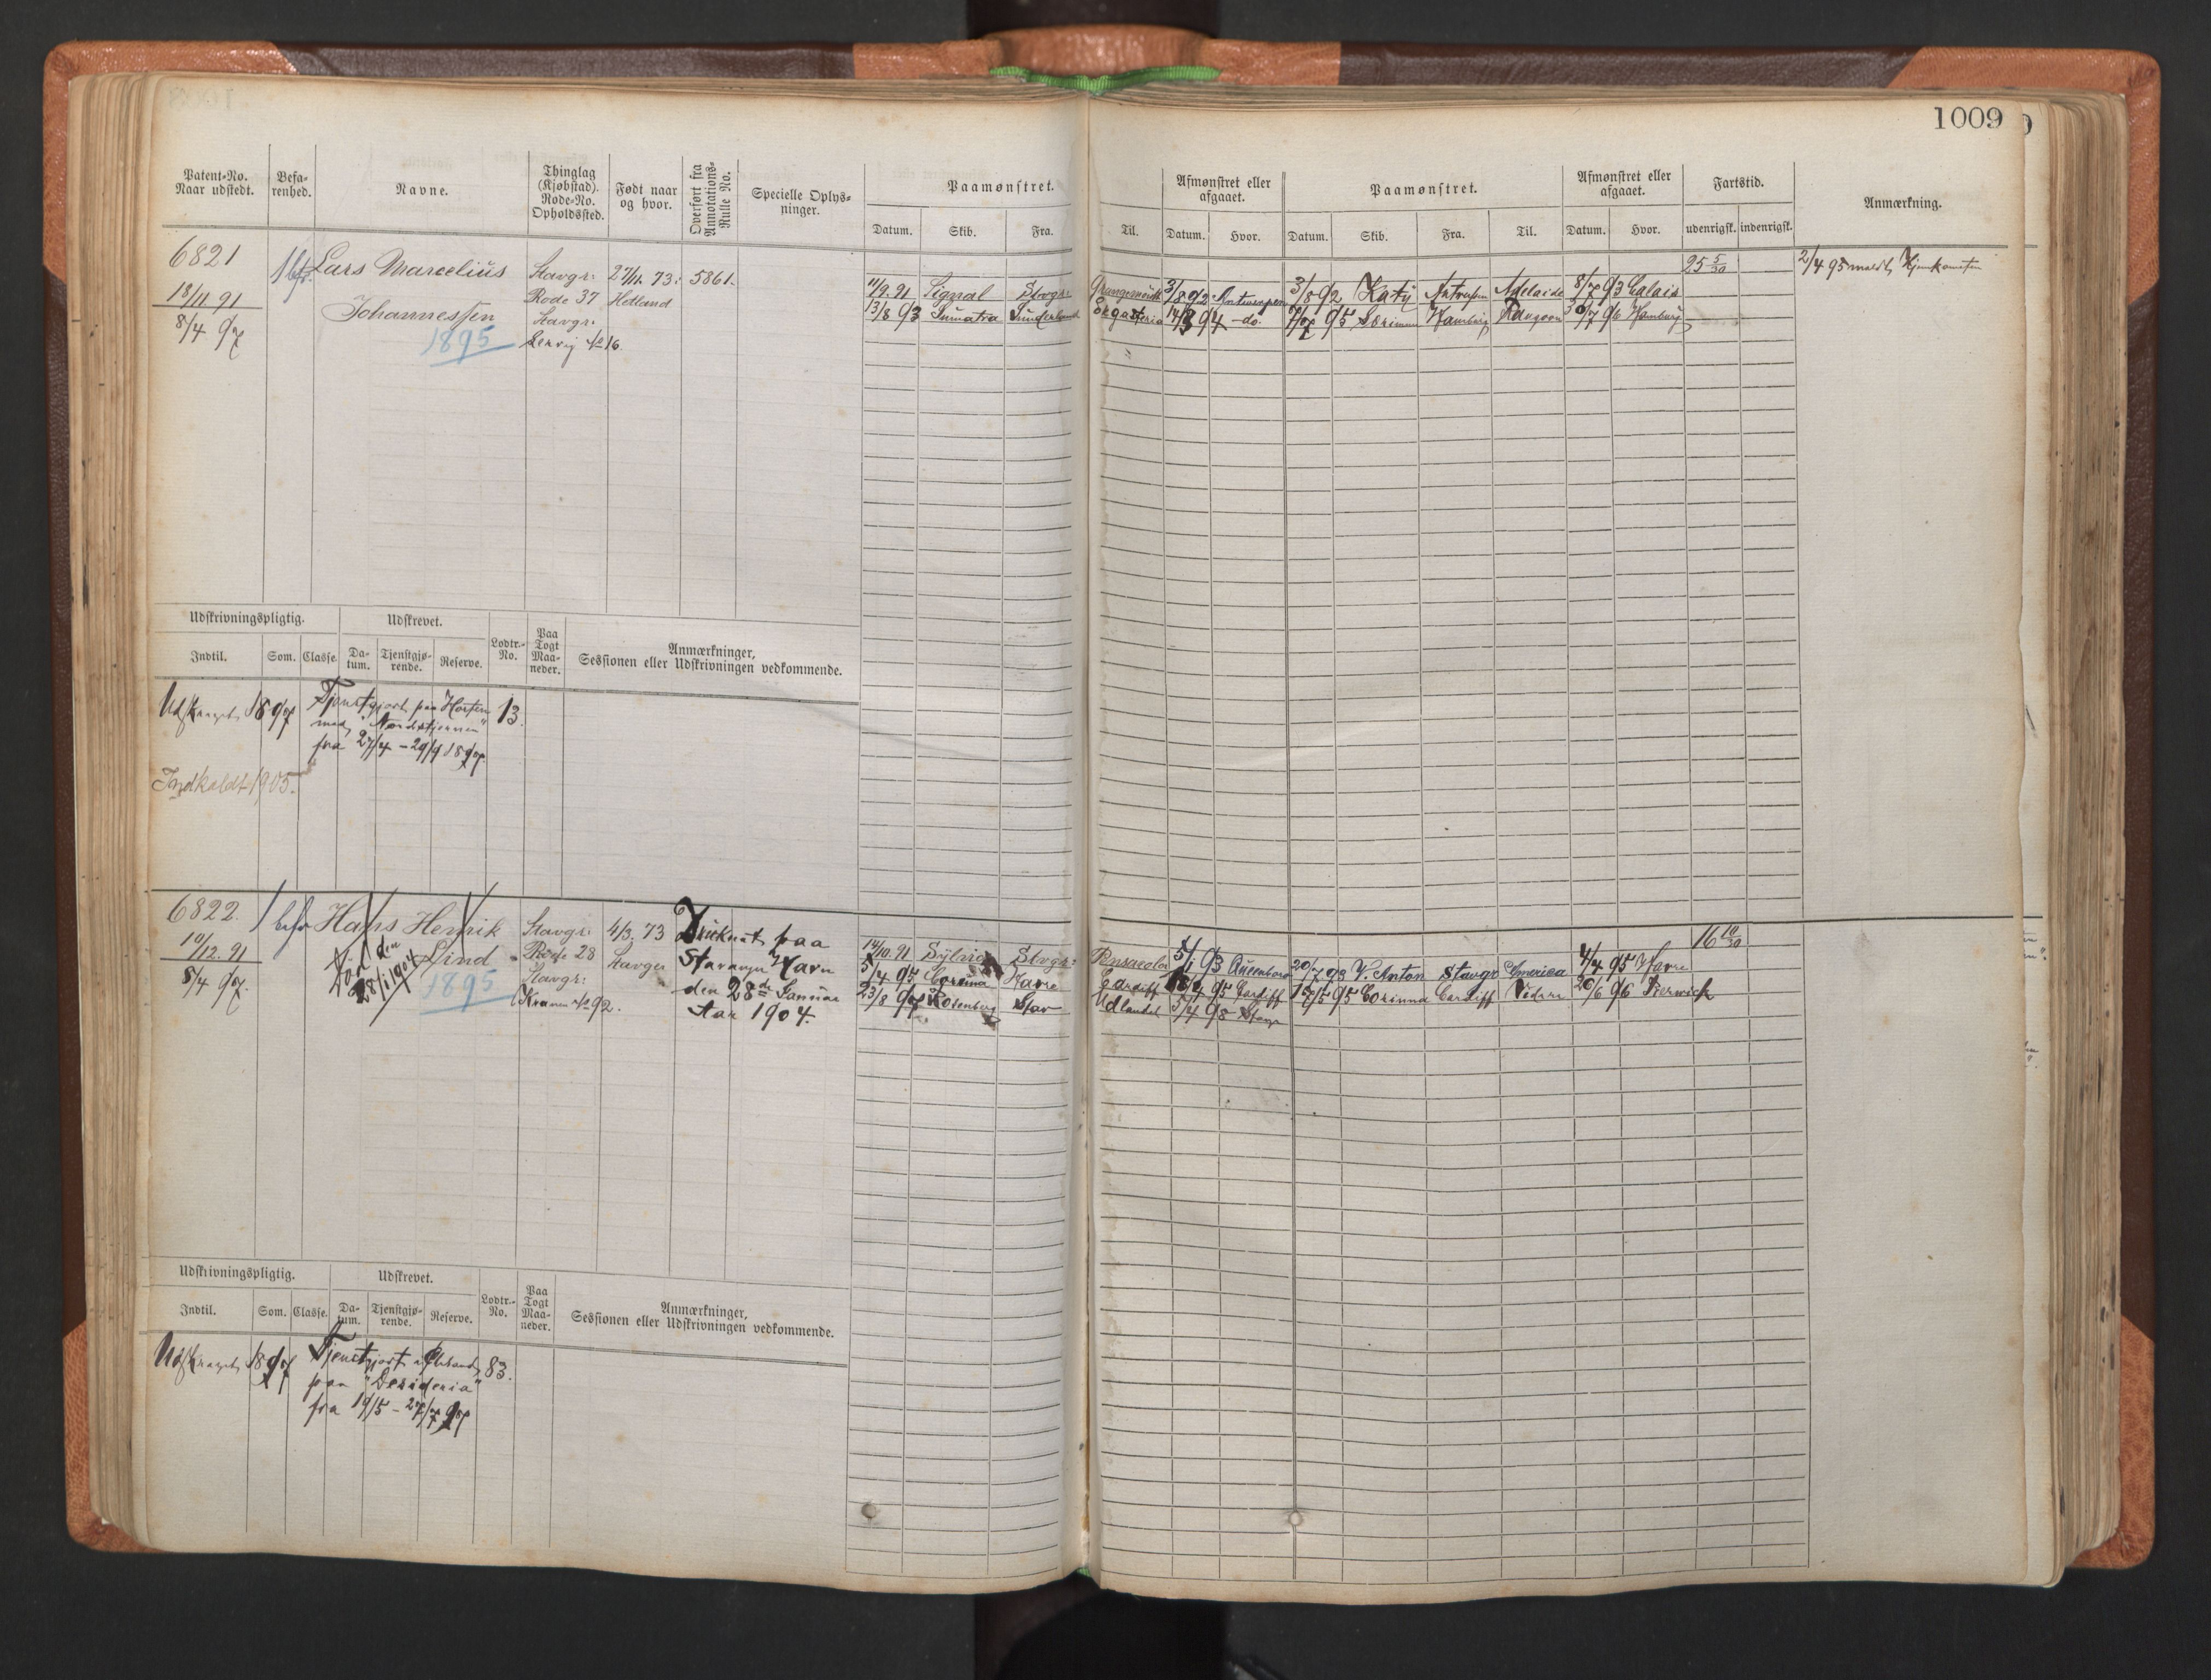 1009
Patent-No. Naar udstedt.
Befa-renhed.
Navne.
Thinglag (Kjøbstad). Rode-No. Opholdssted.
Født naar og hvor.
Overført fra Annotations-Rulle No.
Specielle Oplys-ninger.
Paamønstret.
Datum. Skib. Fra. Til.
Afmønstret eller afgaaet.
Datum. Hvor.
Paamønstret.
Datum. Skib. Fra. Til.
Afmønstret eller afgaaet.
Datum. Hvor.
Fartstid.
udenrigsk. indenrigsk.
Anmærkning.
6821
18/11 91
8/4 97
1 bf.
Lars Marcelius
Johannessen
1895
Stavgr:
Rode 37
Stavgr.
No 16.
27/11. 73.
Hetland
5861.
11/9. 91 Signal Stvgr: 3/8 92 Antwerpen 3/8 92 Katy Antwerpen Adelaide 8/7 93 Calais
13/8 93 Sumatra Sunderland 94 - do. 95 Hamburg Rangoon 30/7 96 Hamburg
25 5/30
2/4 95 meldt Hjemkomsten
Udskrivningspligtig.
Indtil. Som. Classe.
Udskrevet.
Da-tum. Tjenstgjø-rende. Reserve.
Lodtr.-No.
Paa Togt Maa-neder.
Anmærkninger,
Sessionen eller Udskrivningen vedkommende.
1897
Tjenstgjort paa Horten
med "Nordstjernen"
fra 27/4 - 29/9 1897.
13.
Indkaldt 1905.
6822.
10/12. 91
8/4 97.
1 bfr
Hans Henrik
Lind
Død den
28/1 1904
1895
Stavgr:
Rode 28
Stavgr:
No 92.
4/3. 73
Stavger
Druknet paa
Stavanger Havn
den 28de Januar
Aar 1904.
14/10. 91 Sylvia Stvgr: Pensacola 5/1 93 Queenboro 20/7 93 V. Anton Stavgr America 4/4 95 Havre
5/4 95 Corinna Havre Cardiff 95 Cardiff 17/5 95 Corinna Cardiff 20/6 96
23/8 97 Stav Udlandet 5/4 98 Stavgr
16 10/30
Udskrivningspligtig.
Indtil. Som. Classe.
Udskrevet.
Da-tum. Tjenstgjø-rende. Reserve.
Lodtr.-No.
Paa Togt Maa-neder.
Anmærkninger,
Sessionen eller Udskrivningen vedkommende.
1897
Tjenstgjort
paa "Desideria"
fra 19/5 - 27/7 97
83.